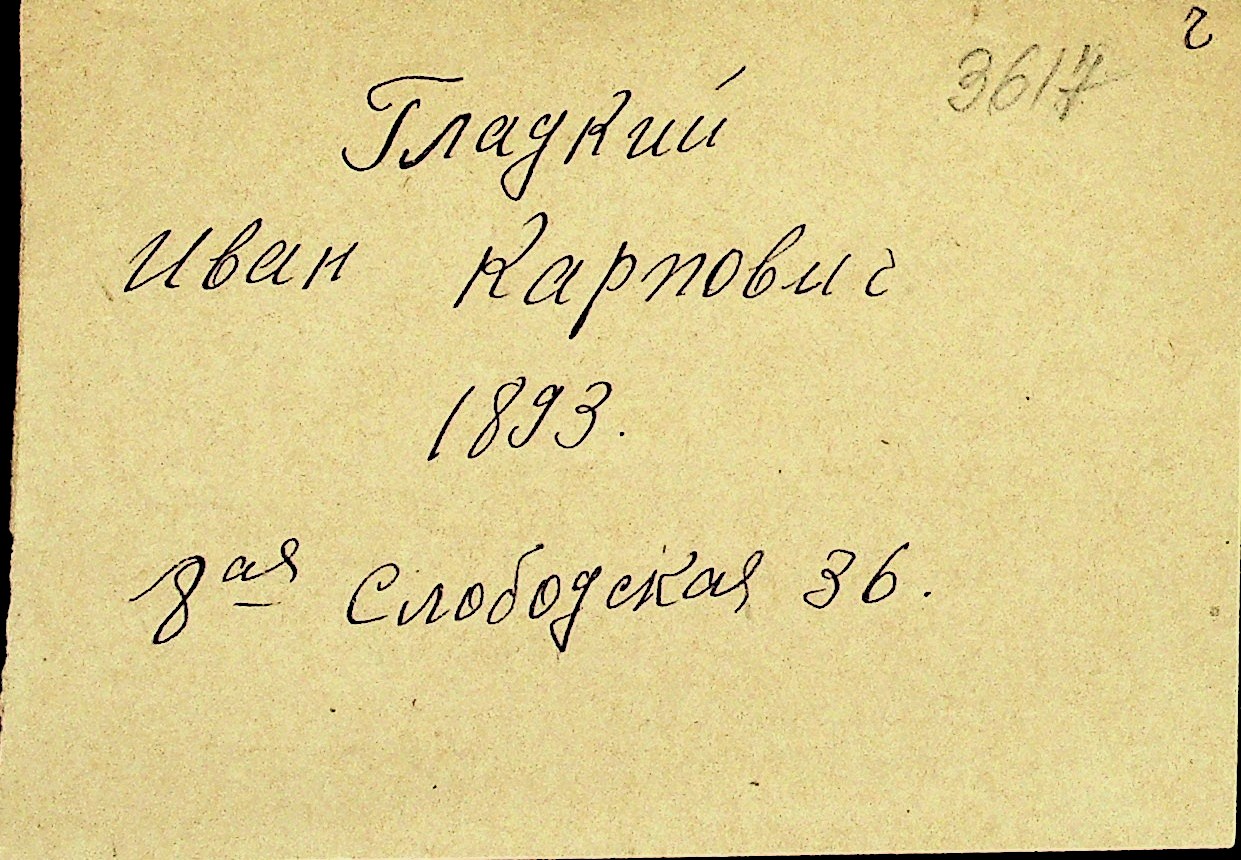 г
3617
Гладкий
Иван Карпович
1893.
8ая Слободская 36.